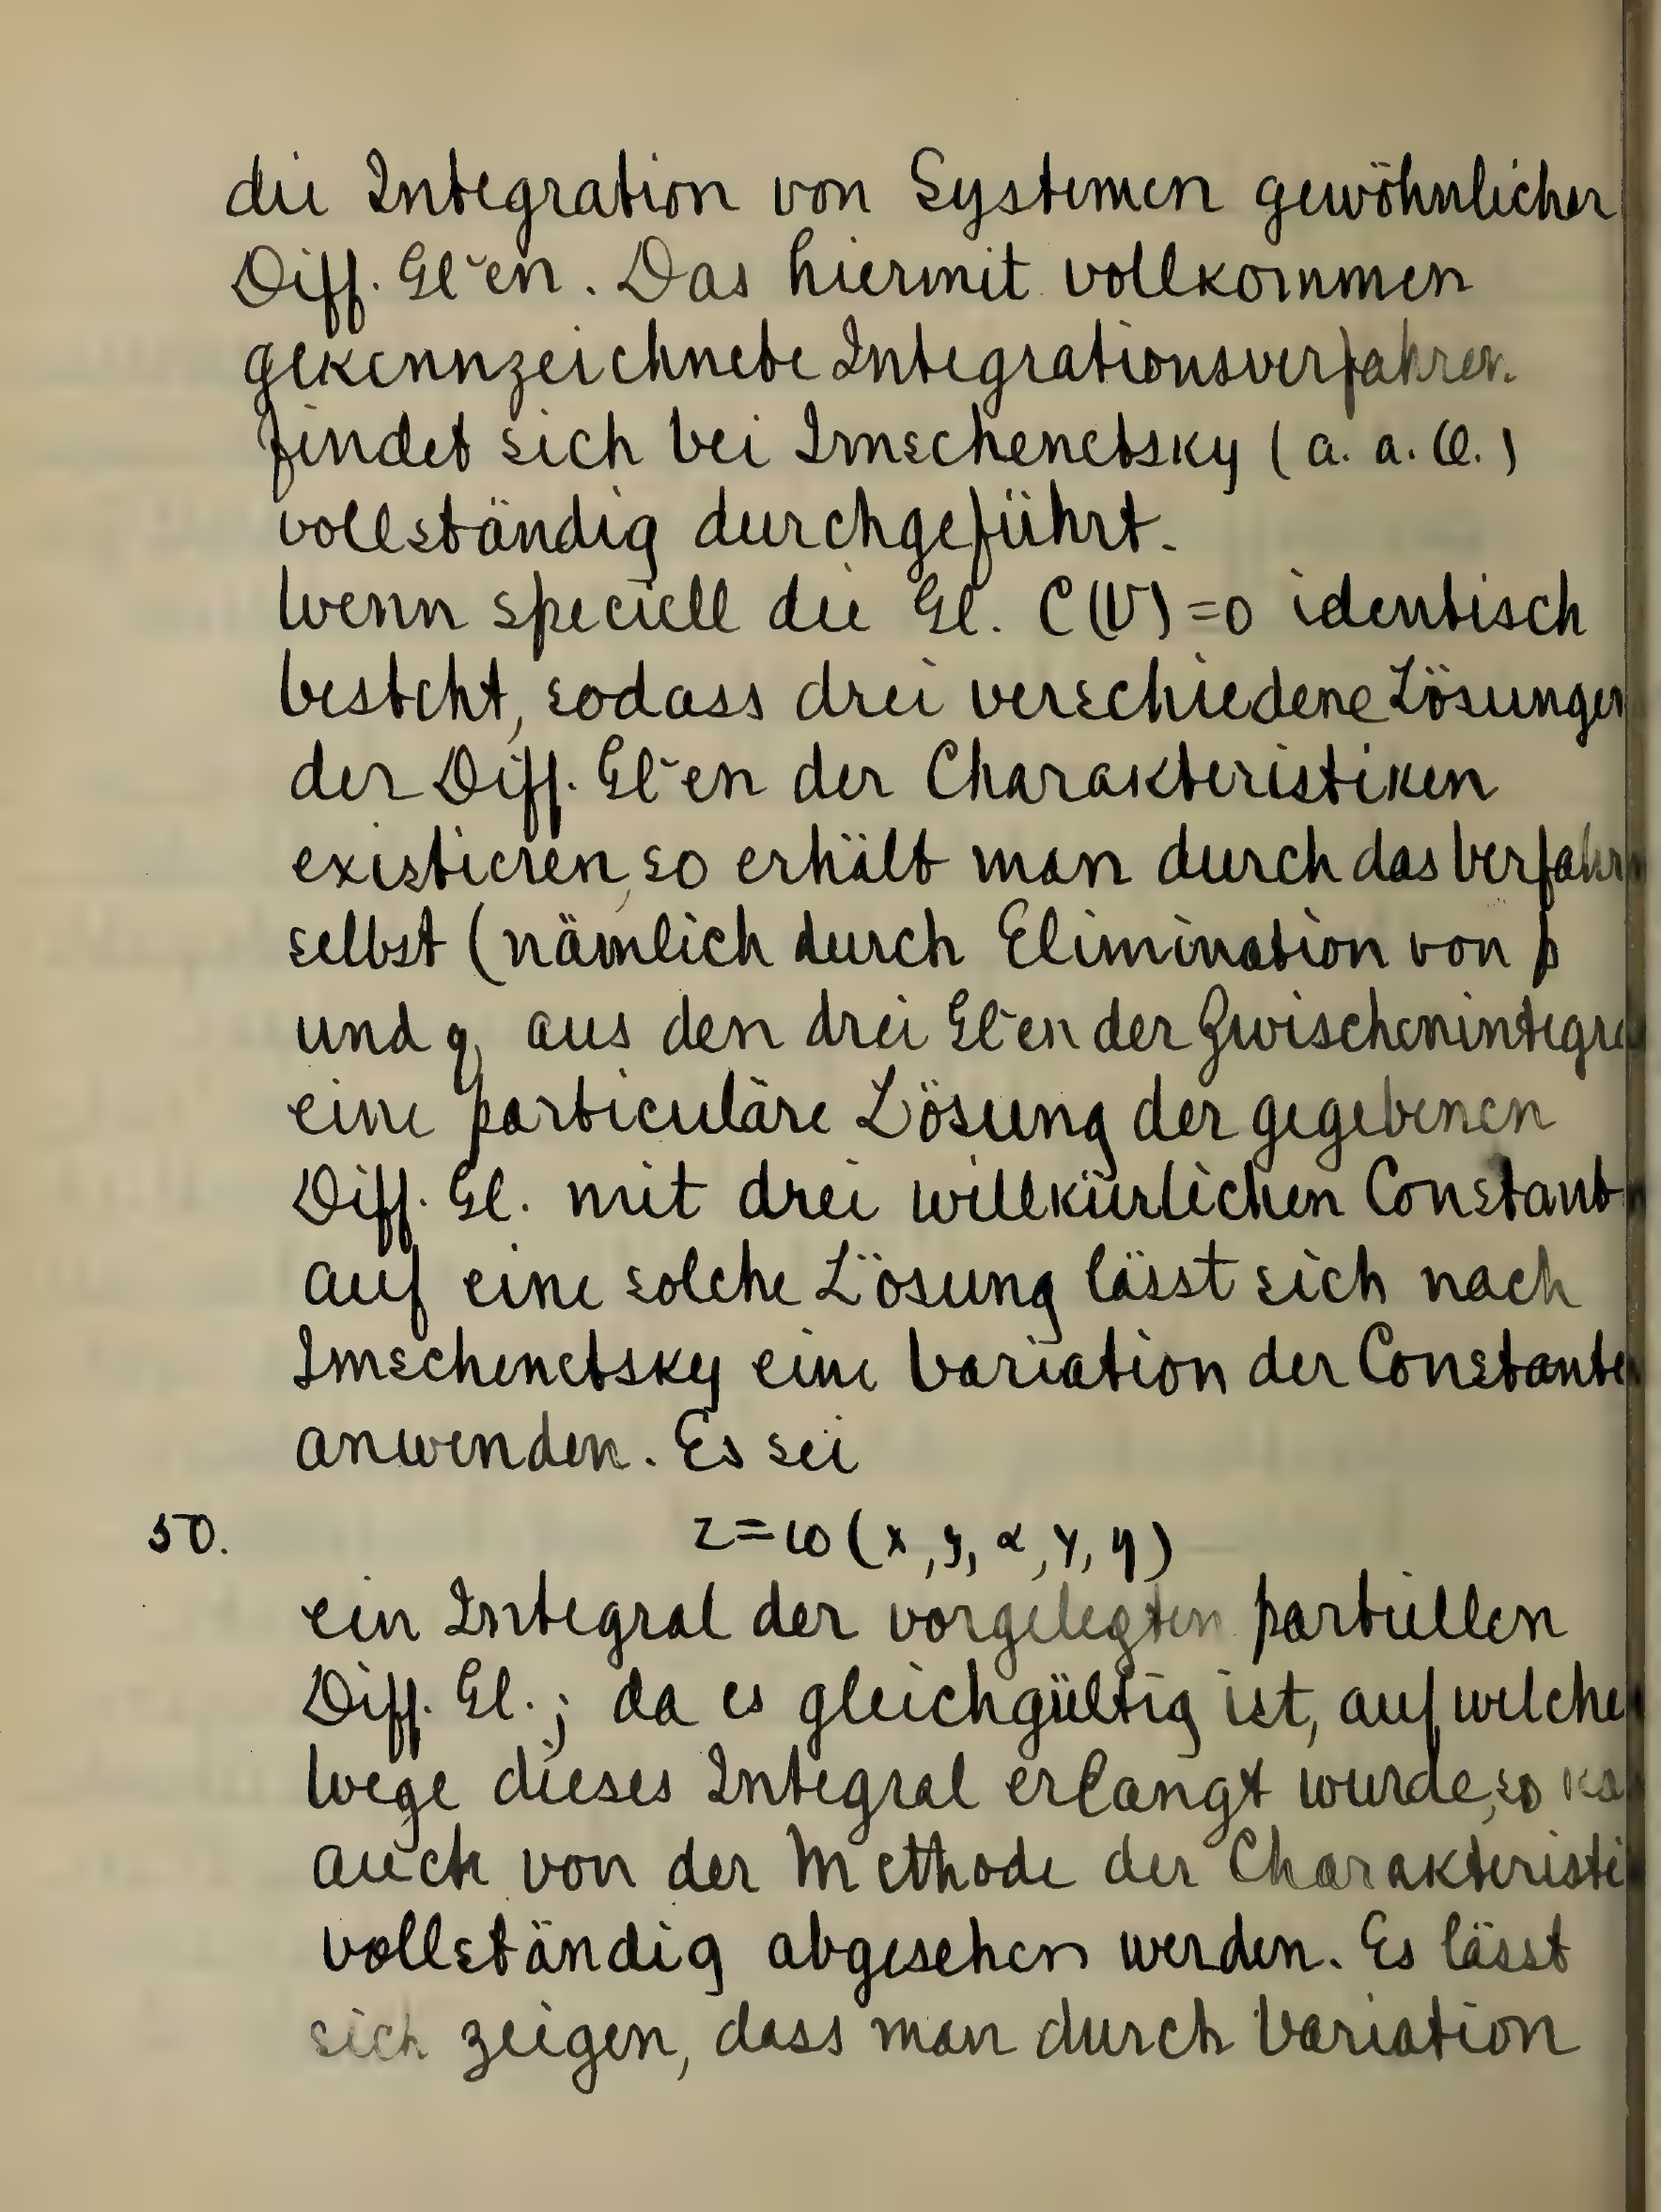 die Integration von Systemen gewöhnlicher
Diff. Gl~en. Das hiermit vollkommen
gekennzeichnete Integrationsverfahren
findet sich bei Imschenetsky (a. a. O.)
vollständig durchgeführt.
Wenn speciell die Gl. C(V)=0 identisch
besteht, sodass drei verschiedene Lösungen
der Diff. Gl~en der Charakteristiken
existieren, so erhält man durch das Verfahr
selbst (nämlich durch Elimination von p
und q aus den drei Gl~en der Zwischenintegra
eine particuläre Lösung der gegebenen
Diff. Gl. mit drei willkürlichen Constant
auf eine solche Lösung lässt sich nach
Imschenetsky eine Variation der Constante
anwenden. Es sei
50. z=ω(x, y, α, γ, η)
ein Integral der vorgelegten partiellen
Diff. Gl.; da es gleichgültig ist, auf welche
Wege dieses Integral erlangt wurde, so ka
auch von der Methode der Charakteristi
vollständig abgesehen werden. Es lässt
sich zeigen, dass man durch Variation